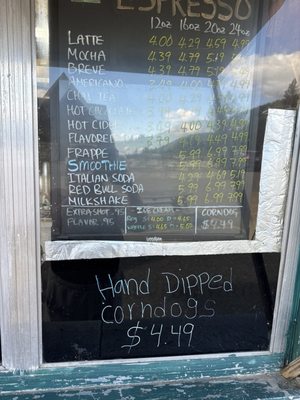 ESPRESSO
12oz 16oz 20oz 24oz
LATTE 4.00 4.29 4.59 4.99
MOCHA 4.39 4.79 5.19
BREVE 4.39 4.79 5.19
AMERICANO
CHAI TEA
HOT
HOT CIDER 4.00 4.39 4.99
FLAVORED 4.19 4.49 4.99
FRAPPE 5.99 6.99 7.99
SMOOTHIE 5.99 6.99 7.99
ITALIAN SODA 4.29 4.69 5.19
RED BULL SODA 5.99 6.99 7.99
MILKSHAKE 5.99 6.99 7.99
EXTRA SHOT .95
FLAVOR .95
ICE CREAM
CORNDOG
$4.49
Hand Dipped
corndogs
$4.49